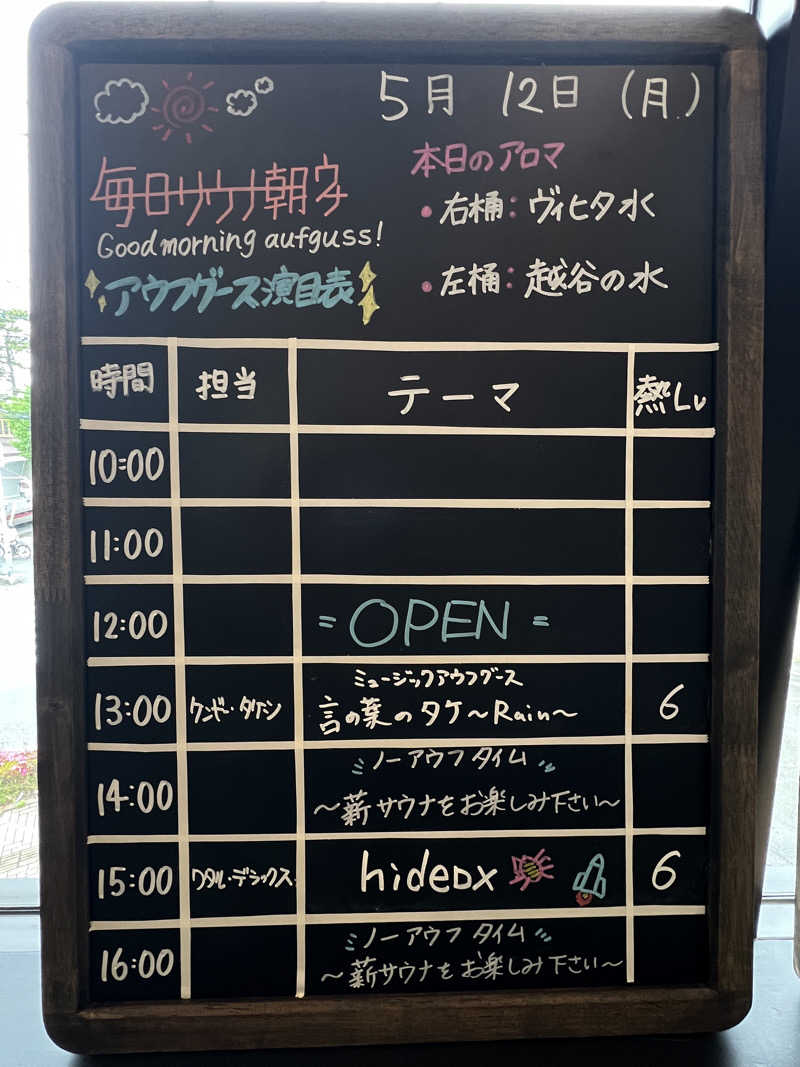 5月 12日 (月)
毎日サウナ朝ウナ
Good morning aufguss!
アウフグース演目表
本日のアロマ
・右桶：ヴィヒタ水
・左桶：越谷の水
時間 担当 テーマ 熱Lv
10:00
11:00
12:00 = OPEN =
ミュージックアウフグース
13:00 ケンドー・タケシ 言の葉のタケ〜Rain〜 6
ノーアウフタイム
14:00 〜薪サウナをお楽しみ下さい〜
15:00 ワタル・デラックス hideDX 6
ノーアウフタイム
16:00 〜薪サウナをお楽しみ下さい〜